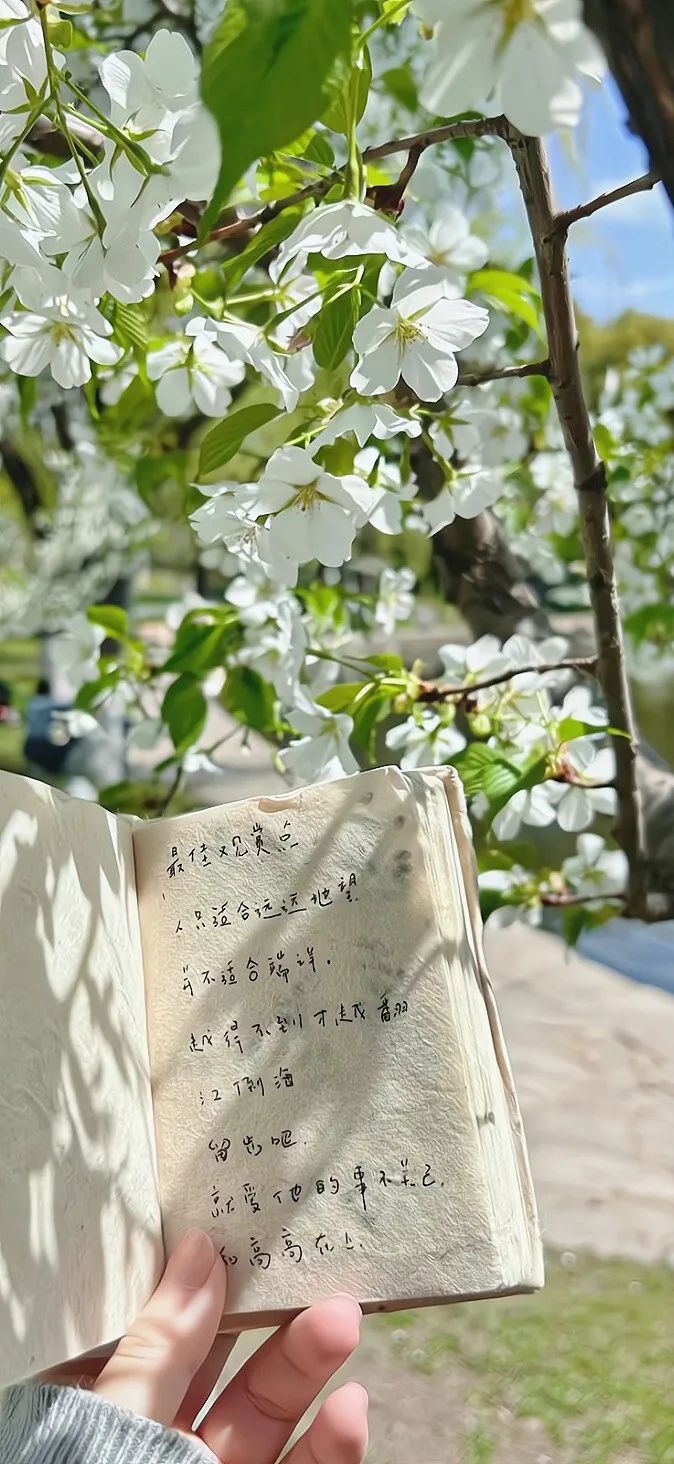 最佳观赏点
人只适合远远地望
并不适合端详.
越得不到才越翻
江倒海
留步吧.
就爱他的事不关己.
和高高在上.